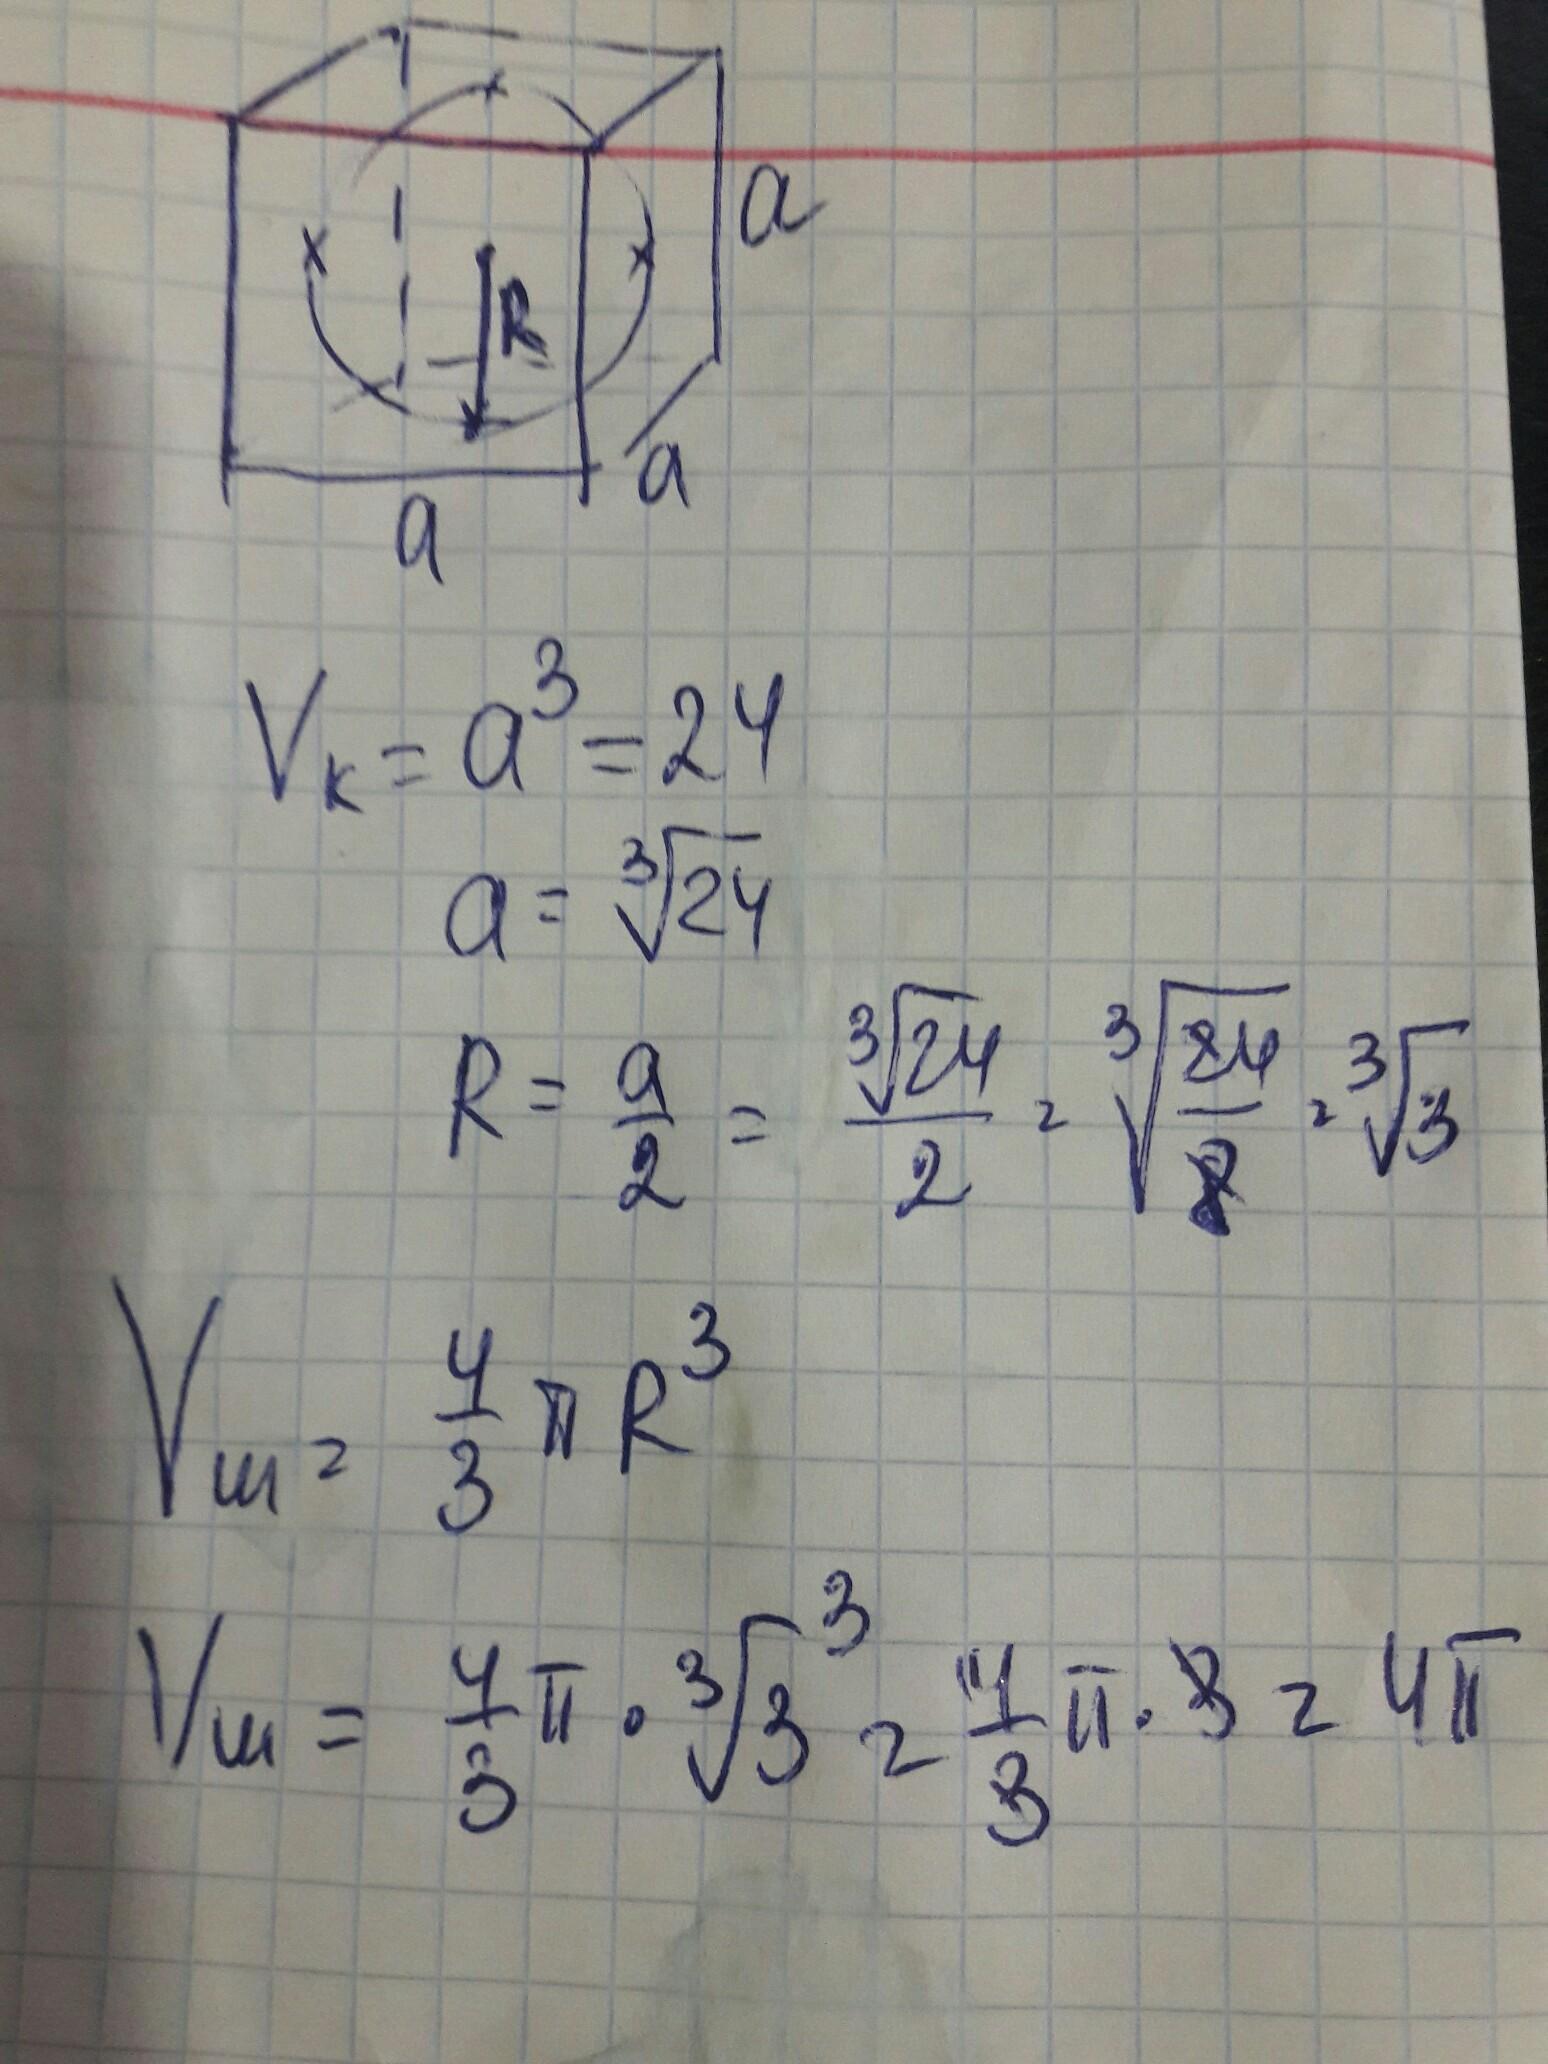 R
a
a
a
Vк = a³ = 24
a = ∛24
R = a/2 = ∛24/2 = ∛(24/8) = ∛3
Vш = 4/3 π R³
Vш = 4/3 π · ∛3³ = 4/3 π · 3 = 4π